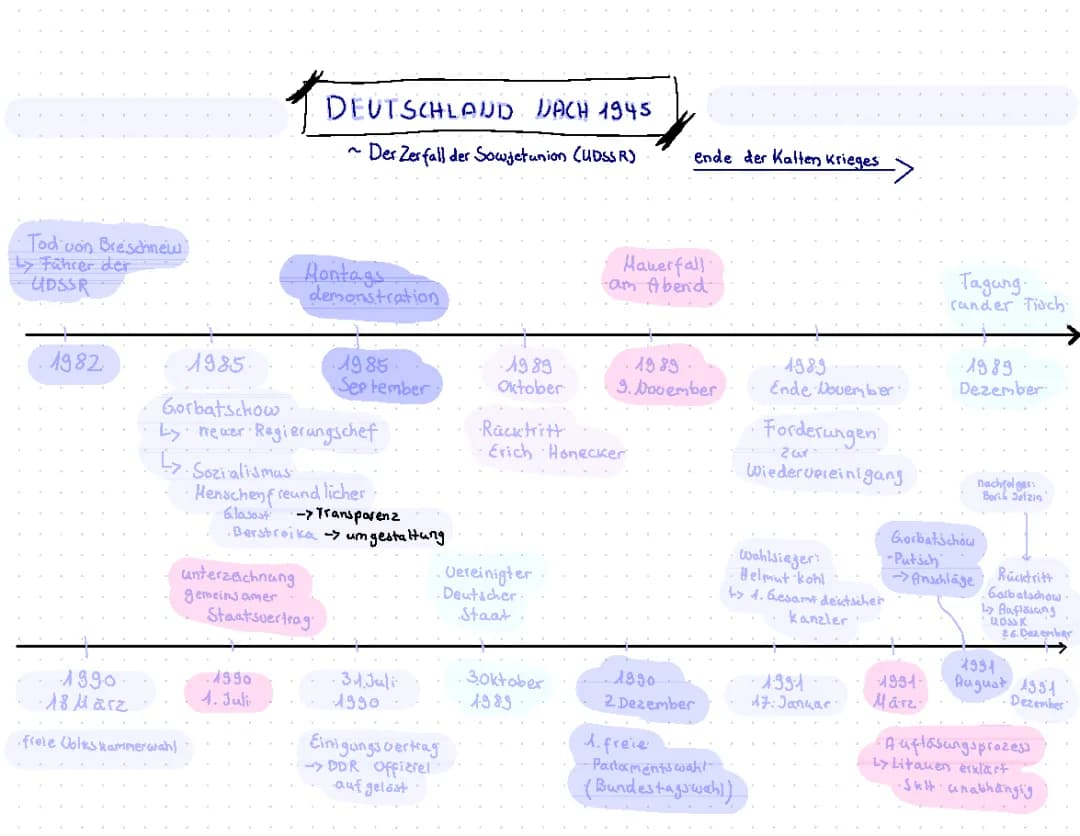 DEUTSCHLAND NACH 1945
~ Der Zerfall der Sowjetunion (UDSSR)
ende der Kalten Krieges
Tod von Breschnew
↳ Führer der
UDSSR
Montags
demonstration
Mauerfall
am Abend
Tagung
runder Tisch
1982
1985
1985
September
1989
Oktober
1989
9. November
1989
Ende November
1989
Dezember
Gorbatschow
↳ neuer Regierungschef
↳ Sozialismus
Menschenfreundlicher
Glasost -> Transparenz
Berstroika -> umgestaltung
Rücktritt
Erich Honecker
Forderungen
zur
Wiedervereinigung
nachfolger:
Boris Jelzin
unterzeichnung
gemeinsamer
Staatsvertrag
Vereinigter
Deutscher
Staat
Wahlsieger:
Helmut kohl
↳ 1. Gesamt deutscher
kanzler
Gorbatschow
-Putsch
-> Anschläge
Rücktritt
Gorbatschow
↳ Auflösung
UDSSR
26. Dezember
1990
18 März
1990
1. Juli
31. Juli
1990
3 Oktober
1989
1990
2. Dezember
1991
17. Januar
1991
März
1991
August
1991
Dezember
freie Volkskammerwahl
Einigungsvertrag
-> DDR Offiziel
aufgelöst
1. freie
Parlamentswahl
(Bundestagswahl)
Auflösungsprozess
↳ Litauen erklärt
sich unabhängig